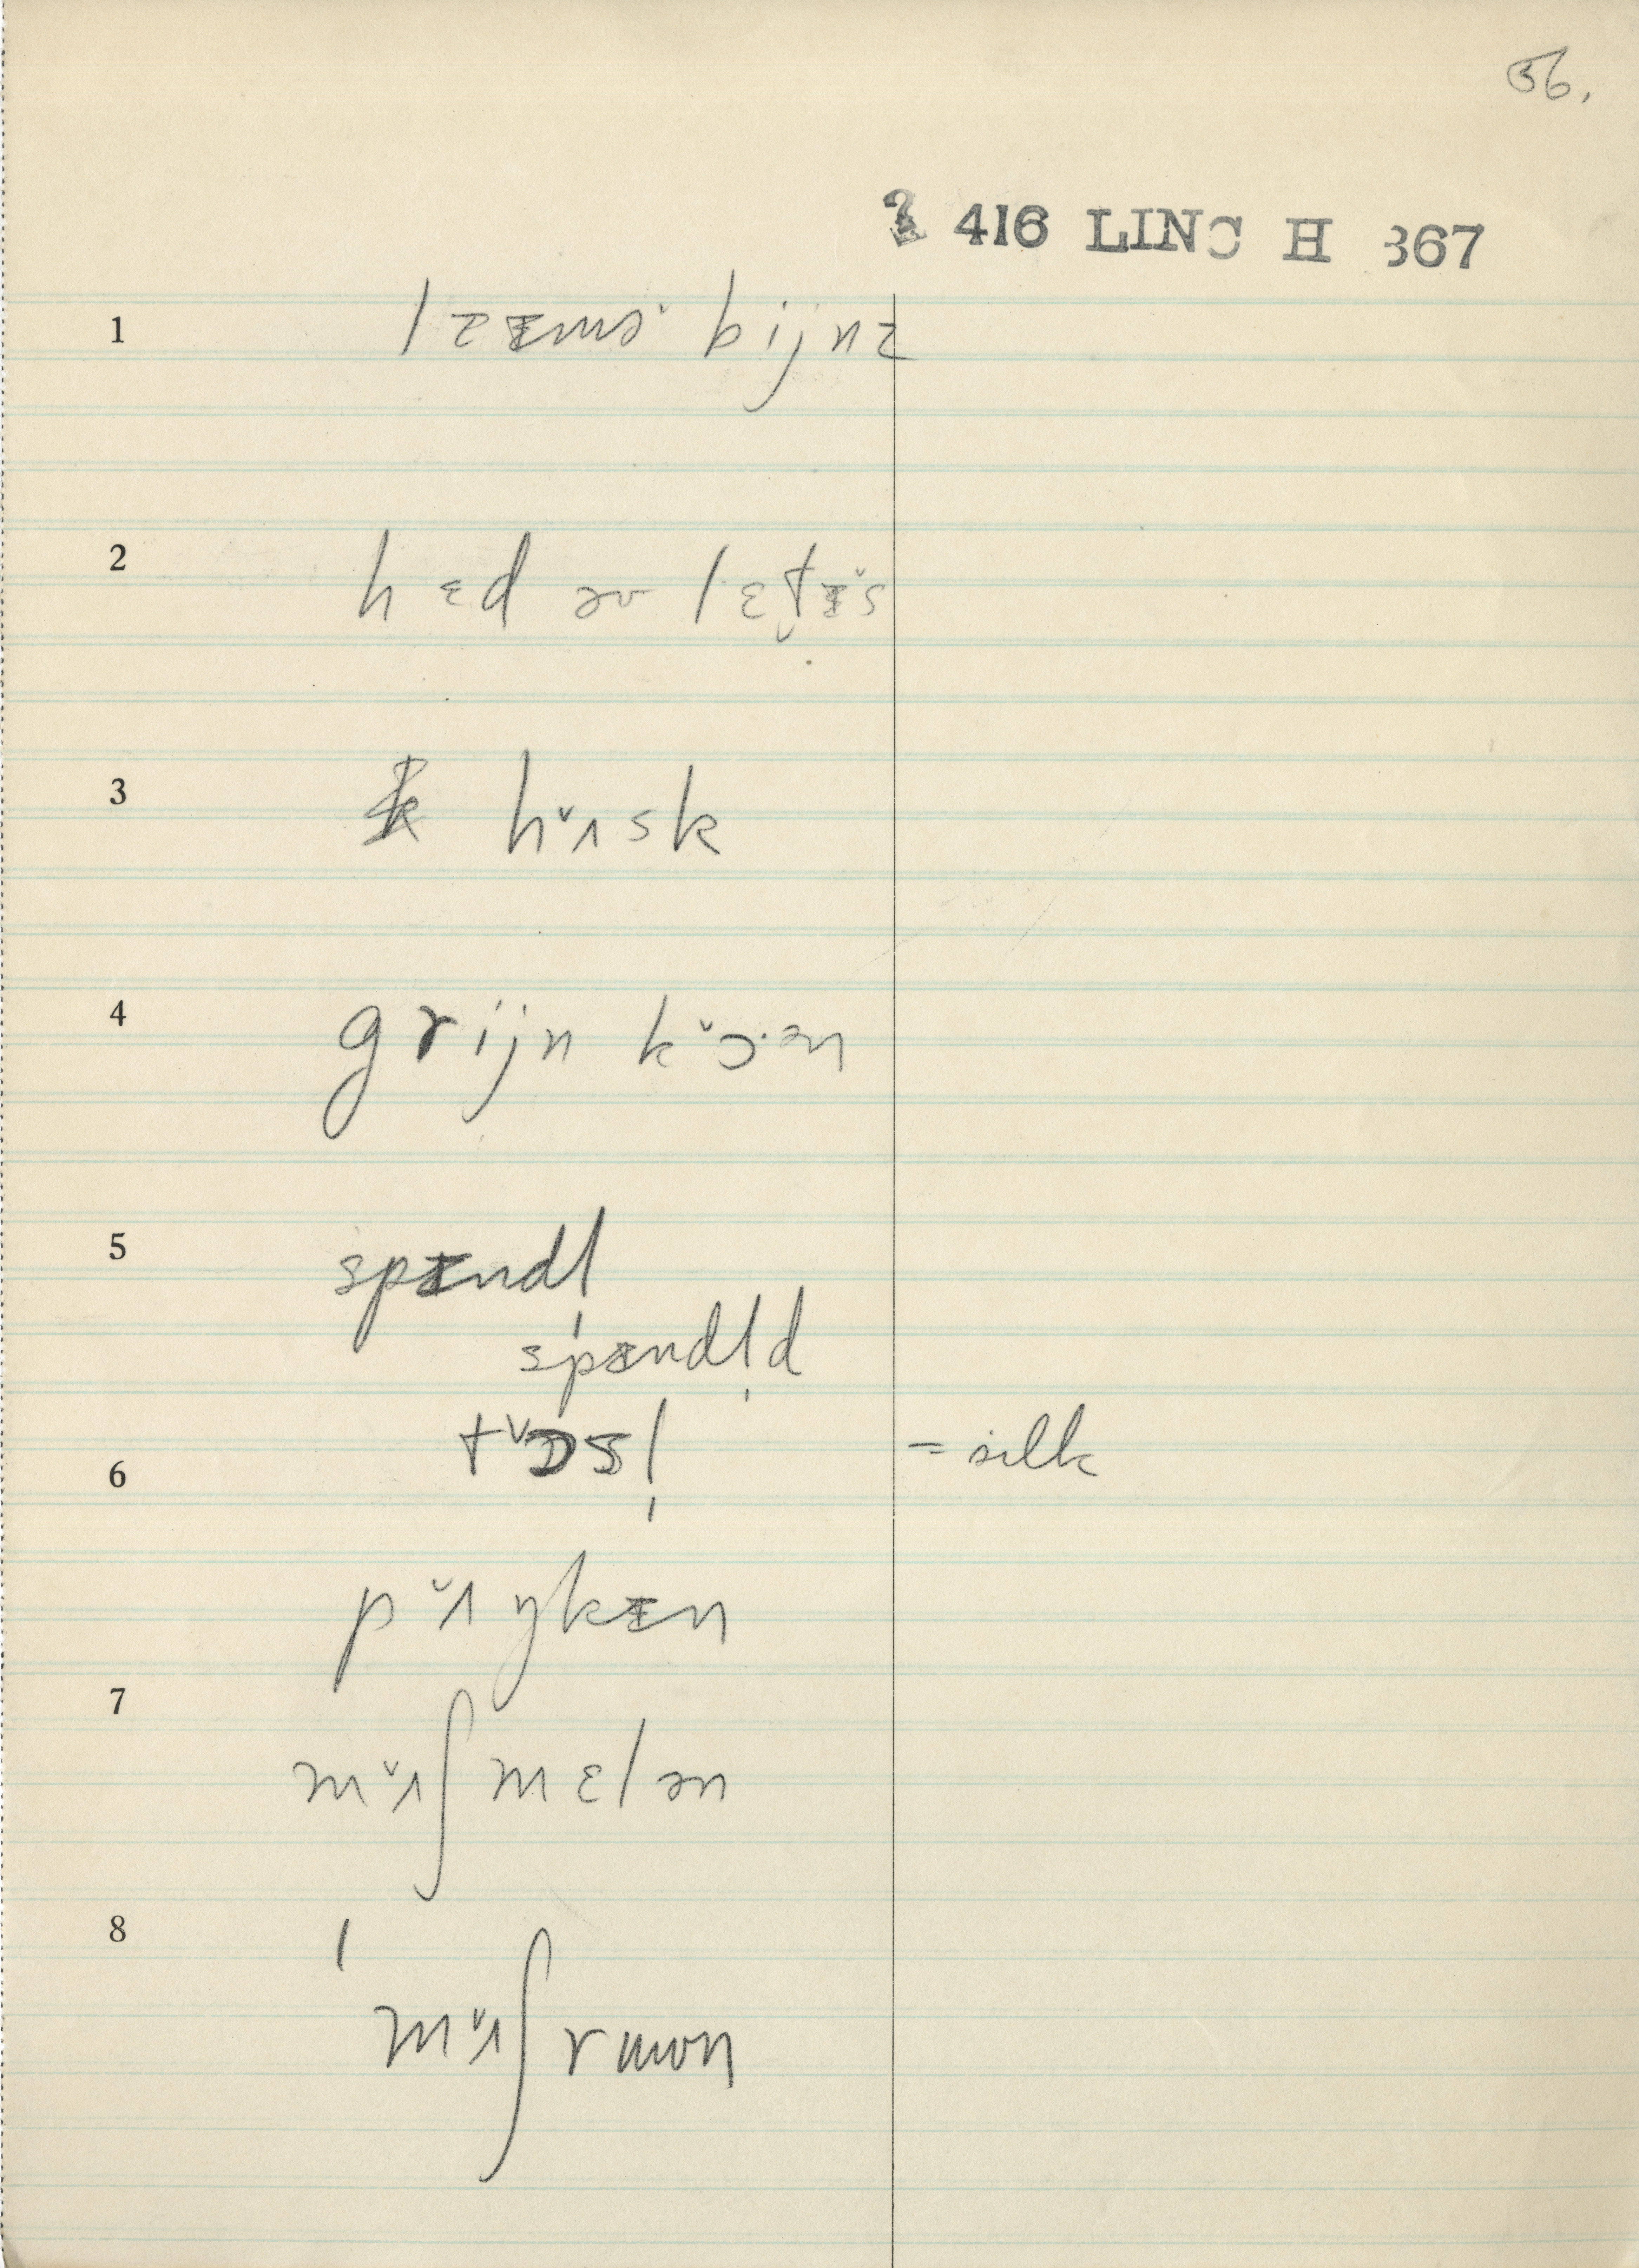 56.
2 416 LINC H 367
1 lᵻᵻmə bijnz
2 hɛd əv lɛt̬ᵻ˅s
3 h˅ʌsk
4 grijn k˅ɔ·ən
5 spᵻndl
spᵻndl̩d
6 t˅ɒsl̩ = silk
p˅ʌŋkᵻn
7 m˅ʌʃmɛlən
8 ˈm˅ʌʃruwn